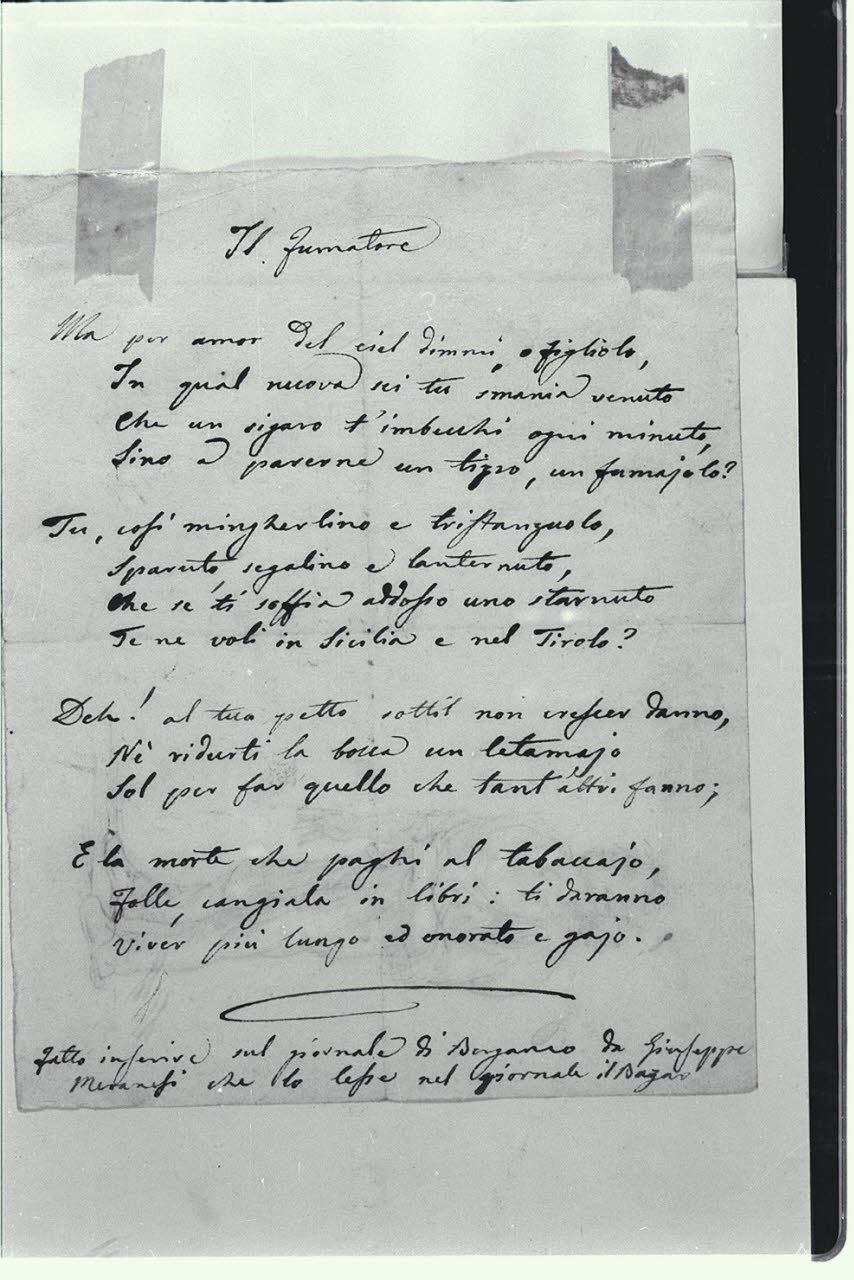 Il fumatore
Ma per amor del ciel dimmi, o figliolo,
In qual nuova sei tu smania venuto
Che un sigaro t'imbecchi ogni minuto,
Sino a parerne un tizzo, un fumajolo?
Tu, così mingherlino e tristanzuolo,
Sparuto, segalino e lanternuto,
Che se ti soffia addosso uno starnuto
Te ne voli in Sicilia e nel Tirolo?
Deh! al tuo petto sottil non crescer danno,
Nè ridurti la bocca un letamajo
Sol per far quello che tant'altri fanno;
E la morte che paghi al tabaccajo,
Folle, cangiala in libri: ti daranno
Viver più lungo ed onorato e gajo.
Fatto inserire sul giornale di Bergamo da Giuseppe
che lo lesse nel giornale il